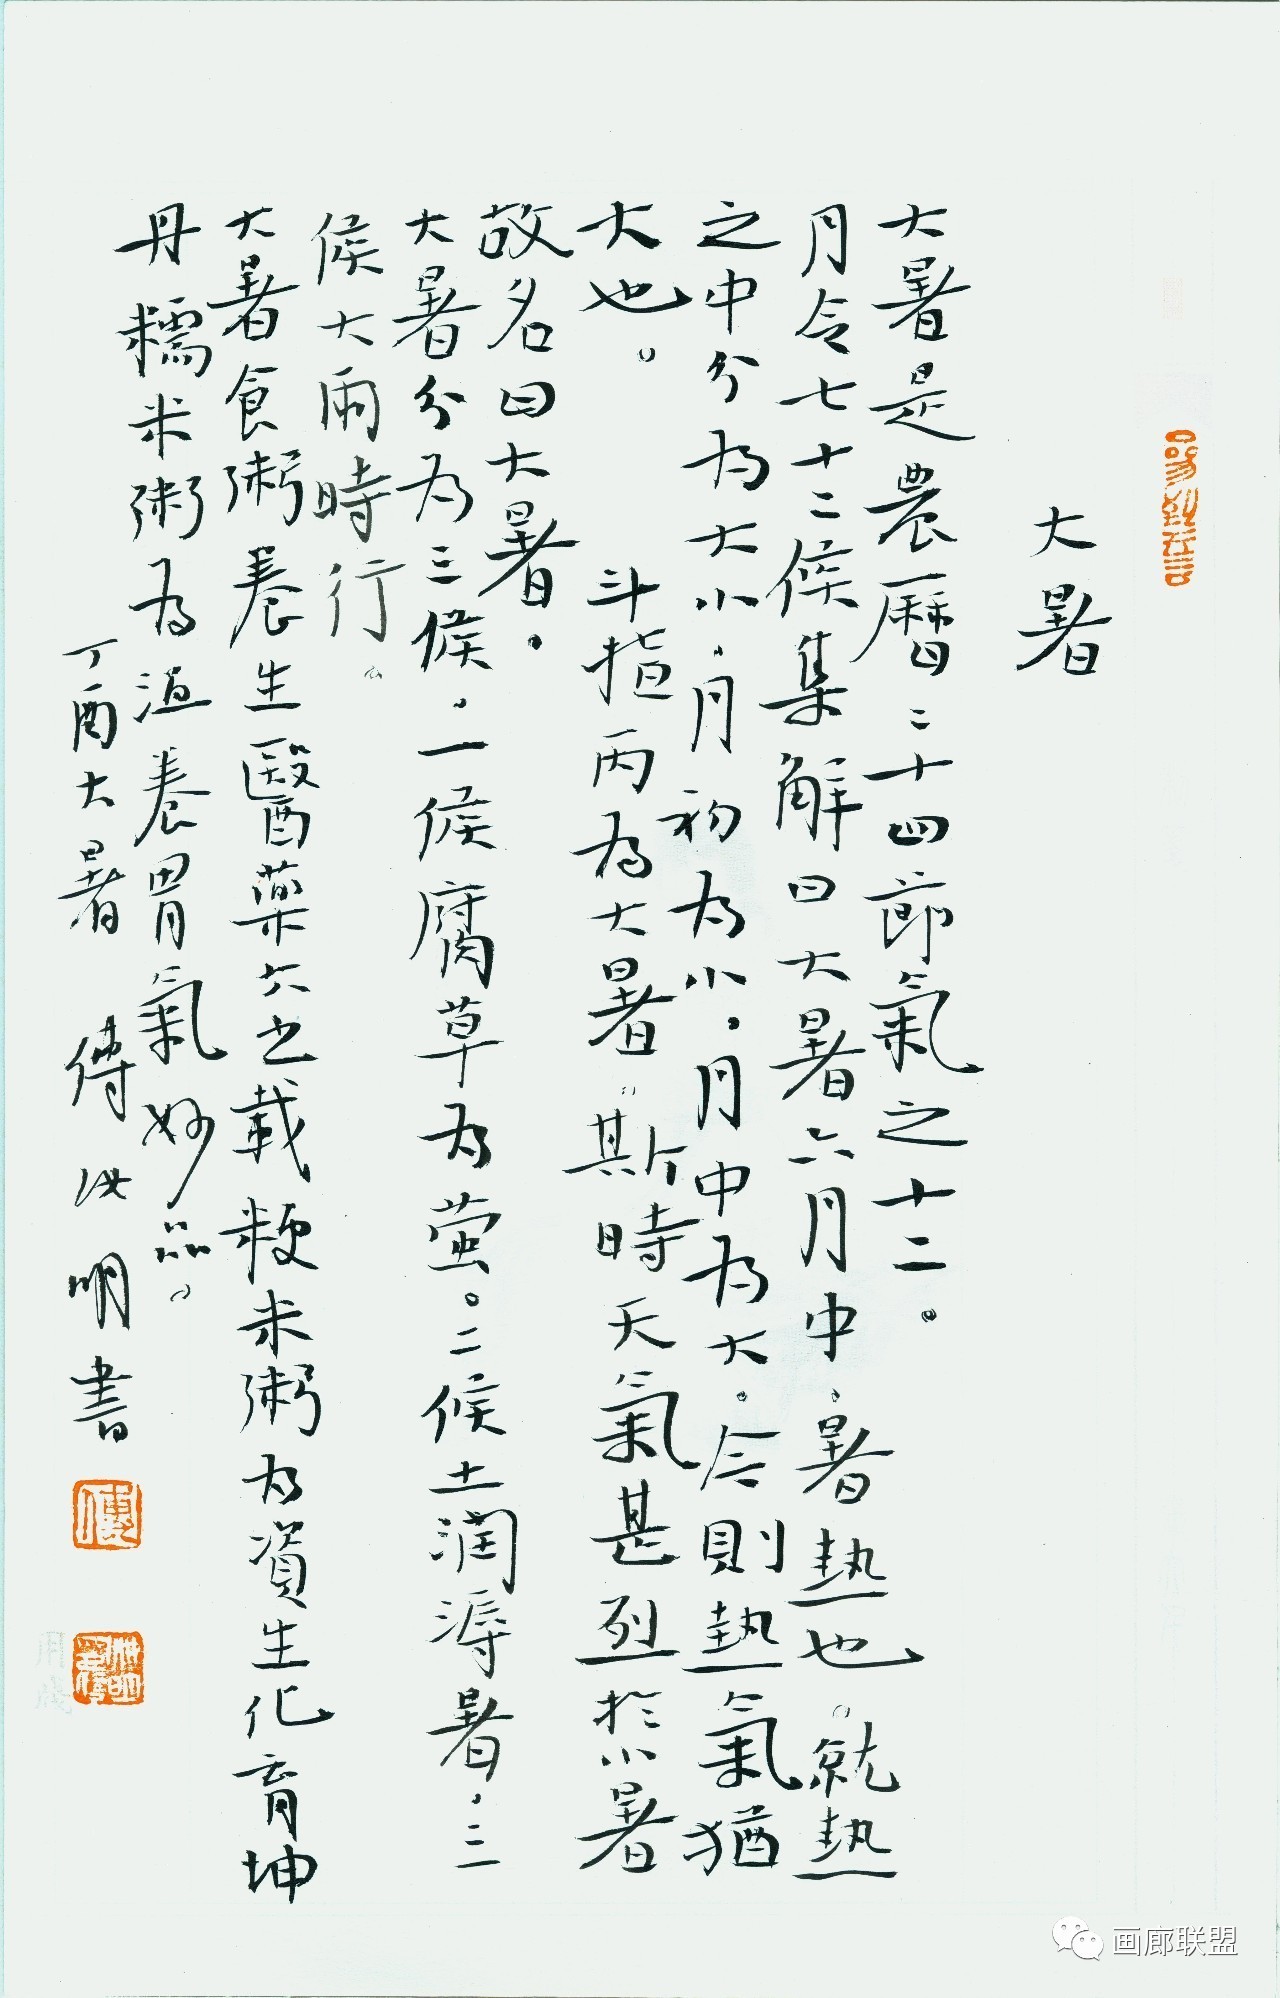 大暑
大暑是農曆二十四節氣之十二。
月令七十二候集解曰大暑六月中，暑熱也。就熱
之中分为大小，月初为小，月中为大。今則熱氣猶
大也。
斗指丙为大暑。斯時天氣甚烈於小暑
故名曰大暑。
大暑分为三候，一候腐草为萤。二候土潤溽暑，三
候大雨時行。
大暑食粥養生醫藥六之載粳米粥为資生化育坤
丹糯米粥为温養胃氣妙品。
丁酉大暑 傅洪明書
画廊联盟